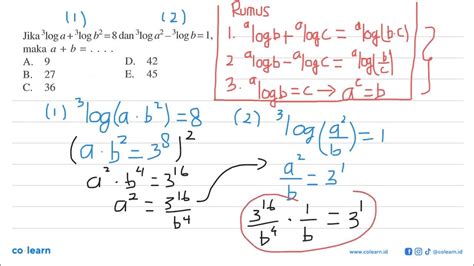 (1) (2)
Jika ³log a + ³log b² = 8 dan ³log a² – ³log b = 1,
maka a + b = . . . .
A. 9 D. 42
B. 27 E. 45
C. 36
Rumus
1. ᵃlog b + ᵃlog c = ᵃlog(b·c)
2. ᵃlog b - ᵃlog c = ᵃlog(b/c)
3. ᵃlog b = c → a^c = b
(1) ³log(a·b²) = 8
(a·b² = 3⁸)²
a²·b⁴ = 3¹⁶
a² = 3¹⁶/b⁴
(2) ³log(a²/b) = 1
a²/b = 3¹
3¹⁶/b⁴ · 1/b = 3¹
co learn
www.colearn.id
@colearn.id